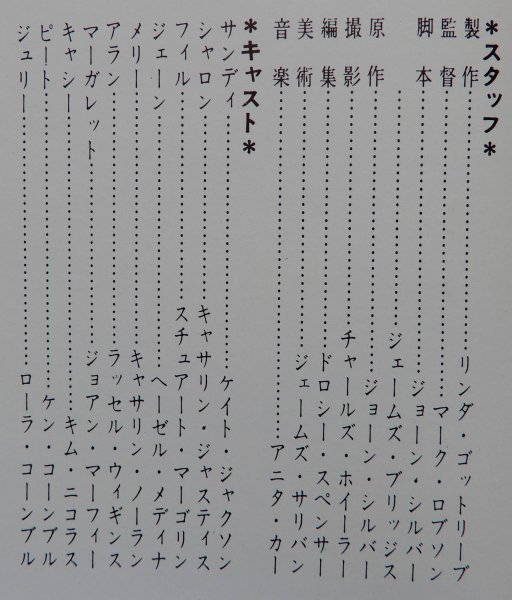 ＊スタッフ＊
製作……………………リンダ・ゴットリーブ
監督……………………マーク・ロブソン
脚本……………………ジョーン・シルバー
……………………ジェームズ・ブリッジス
原作……………………ジョーン・シルバー
撮影……………………チャールズ・ホイーラー
編集……………………ドロシー・スペンサー
美術……………………ジェームズ・サリバン
音楽……………………アニタ・カー
＊キャスト＊
サンディ……………………ケイト・ジャクソン
シャロン……………………キャサリン・ジャスティス
フィル……………………スチュアート・マーゴリン
ジェーン……………………ヘーゼル・メディナ
メリー……………………キャサリン・ノーラン
アラン……………………ラッセル・ウィギンス
マーガレット……………………ジョアン・マーフィー
キャシー……………………キム・ニコラス
ピート……………………ケン・コーンブル
ジュリー……………………ローラ・コーンブル